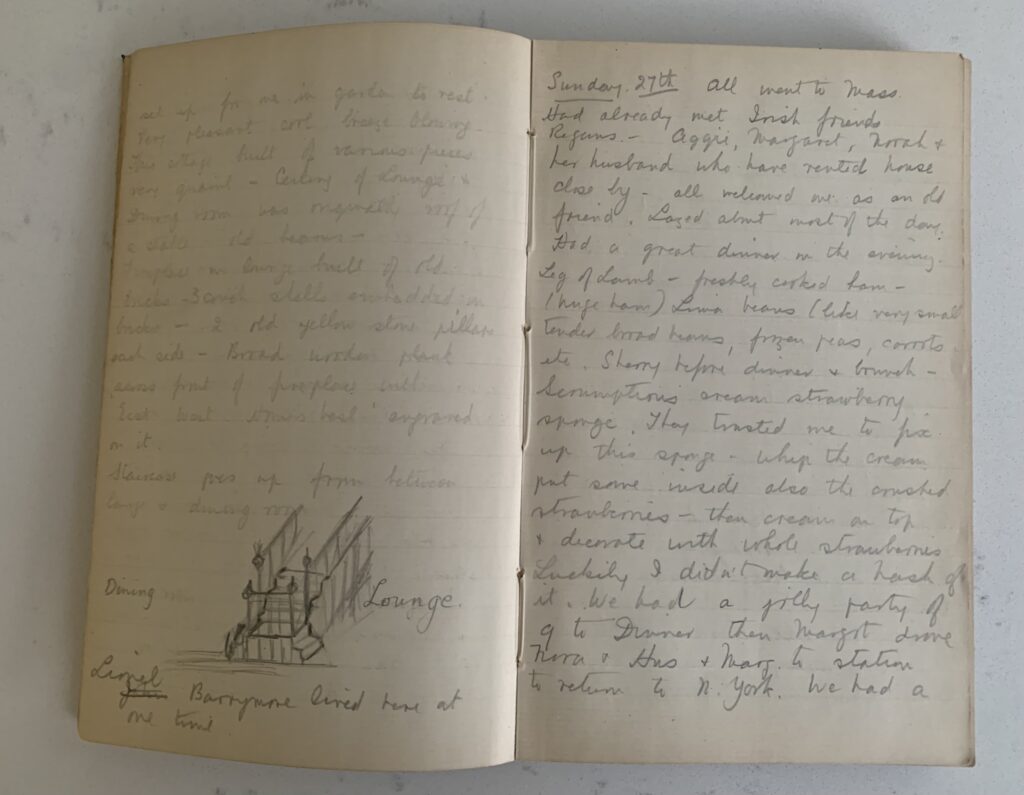 set up for me in garden to rest.
Very pleasant cool breeze blowing
This cottage built of various pieces
very quaint - Ceiling of Lounge &
Dining room was originally roof of
a stable old beams -
Fireplace in lounge built of old
bricks - 3 conch shells embedded in
bricks - 2 old yellow stone pillars
each side - Broad wooden plank
across front of fireplace with
'East West Home's best' engraved
on it.
Staircase goes up from between
lounge & dining room
Dining room
Lounge.
Lionel
Barrymore lived here at
one time
Sunday. 27th All went to Mass.
Had already met Irish friends
Regans. - Aggie, Margaret, Norah &
her husband who have rented house
close by - all welcomed me as an old
friend. Lazed about most of the day.
Had a great dinner in the evening.
Leg of Lamb - freshly cooked ham -
(huge ham) Lima beans (like very small
tender broad beans, frozen peas, carrots
etc. Sherry before dinner & brunch -
Scrumptious cream strawberry
sponge. They trusted me to fix
up this sponge - whip the cream
put some inside also the crushed
strawberries - then cream on top
& decorate with whole strawberries
Luckily I didn't make a hash of
it. We had a jolly party of
9 to Dinner then Margot drove
Nora & Hus & Marg. to station
to return to N. York. We had a